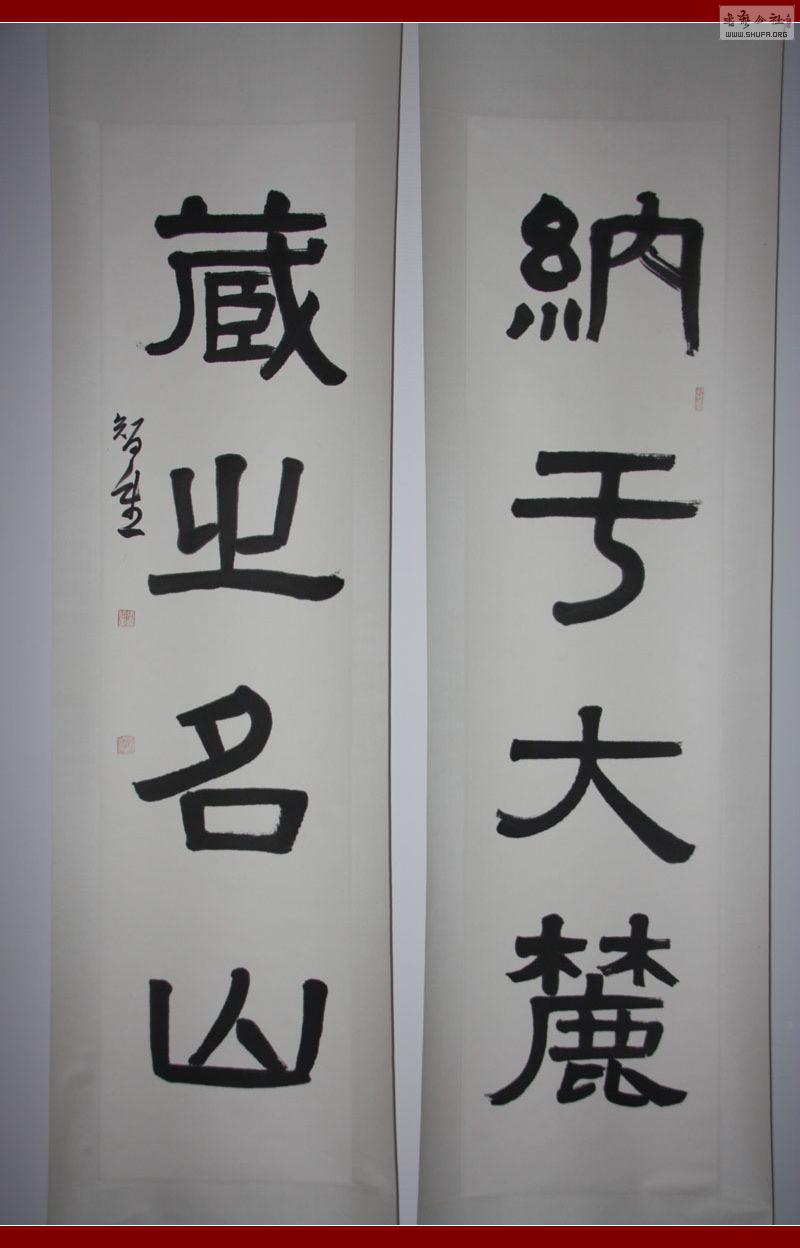 納于大麓
藏之名山
書藝公社
WWW.SHUFA.ORG